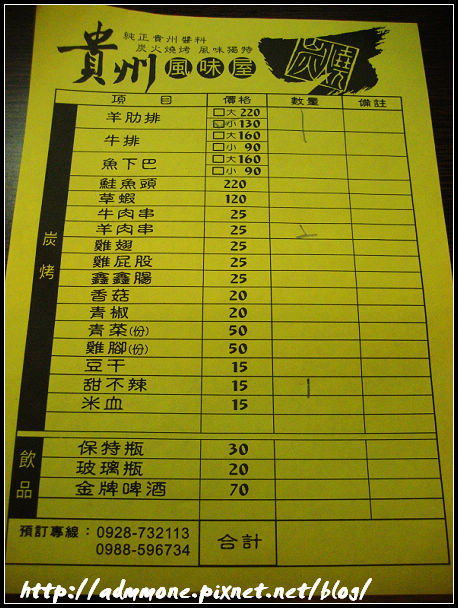 純正貴州醬料
炭火燒烤 風味獨特
貴州風味屋
炭燒
項目 價格 數量 備註
炭烤
羊肋排 □大 220
□小 130
牛排 □大 160
□小 90
魚下巴 □大 160
□小 90
鮭魚頭 220
草蝦 120
牛肉串 25
羊肉串 25
雞翅 25
雞屁股 25
鑫鑫腸 25
香菇 20
青椒 20
青菜(份) 50
雞腳(份) 50
豆干 15
甜不辣 15 1
米血 15
飲品
保特瓶 30
玻璃瓶 20
金牌啤酒 70
預訂專線：0928-732113
0988-596734
合計
http://admmone.pixnet.net/blog/